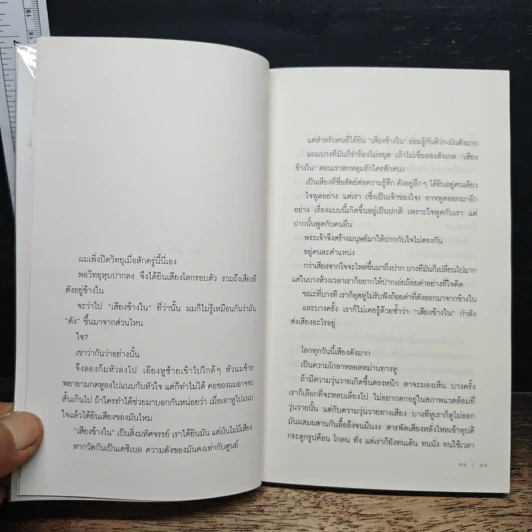 ผมเพิ่งปิดวิทยุเมื่อสักครู่นี้นี่เอง
พอวิทยุหุบปากลง จึงได้ยินเสียงโลกรอบตัว รวมถึงเสียงที่
ดังอยู่ข้างใน
จะว่าไป "เสียงข้างใน" ที่ว่านั้น ผมก็ไม่รู้เหมือนกันว่ามัน
"ดัง" ขึ้นมาจากส่วนไหน
ใจ?
เขาว่ากันว่าอย่างนั้น
จึงลองก้มหัวลงไป เอียงหูซ้ายเข้าไปใกล้ๆ หัวนมซ้าย
พยายามกดหูลงไปแนบกับหัวใจ แต่ก็ทำไม่ได้ คอของผมอาจจะ
สั้นเกินไป ถ้าใครทำได้ช่วยมาบอกกันหน่อยว่า เมื่อเอาหูไปแนบ
ใจแล้วได้ยินเสียงของมันไหม
"เสียงข้างใน" เป็นสิ่งมหัศจรรย์ เราได้ยินมัน แต่มันไม่มีเสียง
หากวัดกันเป็นเดซิเบล ความดังของมันคงเท่ากับศูนย์
แต่สำหรับคนที่ได้ยิน "เสียงข้างใน" ย่อมรู้กันดีว่า-มันดังมาก
แถมบางทีมันก็ร่ำร้องไม่หยุด (ถ้าไม่เชื่อลองสังเกต "เสียง
ข้างใน" ตอนเราตกหลุมรักใครสักคน)
เป็นเสียงที่ซื่อสัตย์ต่อความรู้สึก ดังอยู่ลึกๆ ได้ยินอยู่คนเดียว
ใจพูดอย่าง แต่เรา (ซึ่งเป็นเจ้าของใจ) อาจพูดออกมาอีก
อย่าง เรื่องแบบนี้เกิดขึ้นอยู่เป็นปกติ เพราะใจพูดกับเรา แต่
ปากนั้นพูดกับคนอื่น
พระเจ้าจึงสร้างมนุษย์มาให้ปากกับใจไม่ตรงกัน
อยู่คนละตำแหน่ง
กว่าเสียงจากใจจะไหลขึ้นมาถึงปาก บางทีมันก็เปลี่ยนไปมาก
แต่ในบางห้วงเวลาเราก็อยากให้ปากเอ่ยถ้อยอย่างที่ใจคิด
ขณะที่บางที เราก็อุดหูไม่รับฟังถ้อยคำที่ดังออกมาจากข้างใน
และบางครั้ง เราก็ไม่เคยรู้ด้วยซ้ำว่า "เสียงข้างใน" กำลัง
ส่งเสียงอะไรอยู่
โลกทุกวันนี้เสียงดังมาก
เป็นความโกลาหลอลหม่านทางหู
ถ้ามีความวุ่นวายเกิดขึ้นตรงหน้า ตาจะมองเห็น บางครั้ง
เราก็เลือกที่จะหลบเลี่ยงไป ไม่อยากตกอยู่ในสภาพแวดล้อมที่
วุ่นวายนั้น แต่กับความวุ่นวายทางเสียง บางทีหูเราก็ดูไม่ออก
มันผสมผสานกันอื้ออึงจนมึนงง สารพัดเสียงหลั่งไหลเข้าทุบตี
กระดูกรูปค้อน โกลน ทั่ง แต่เราก็ยังทนเดิน ทนนั่ง ทนใช้เวลา